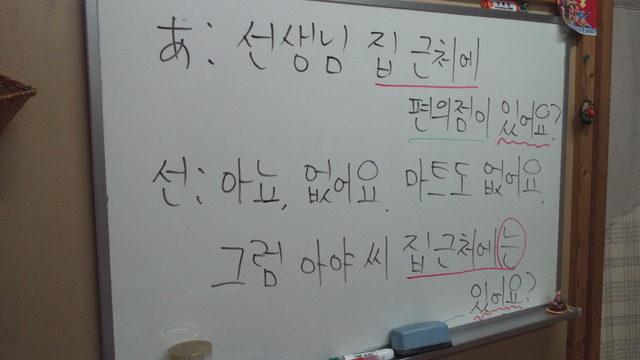 あ: 선생님 집 근처에
편의점이 있어요?
선: 아뇨, 없어요. 마트도 없어요.
그럼 아야 씨 집 근처에는
있어요?